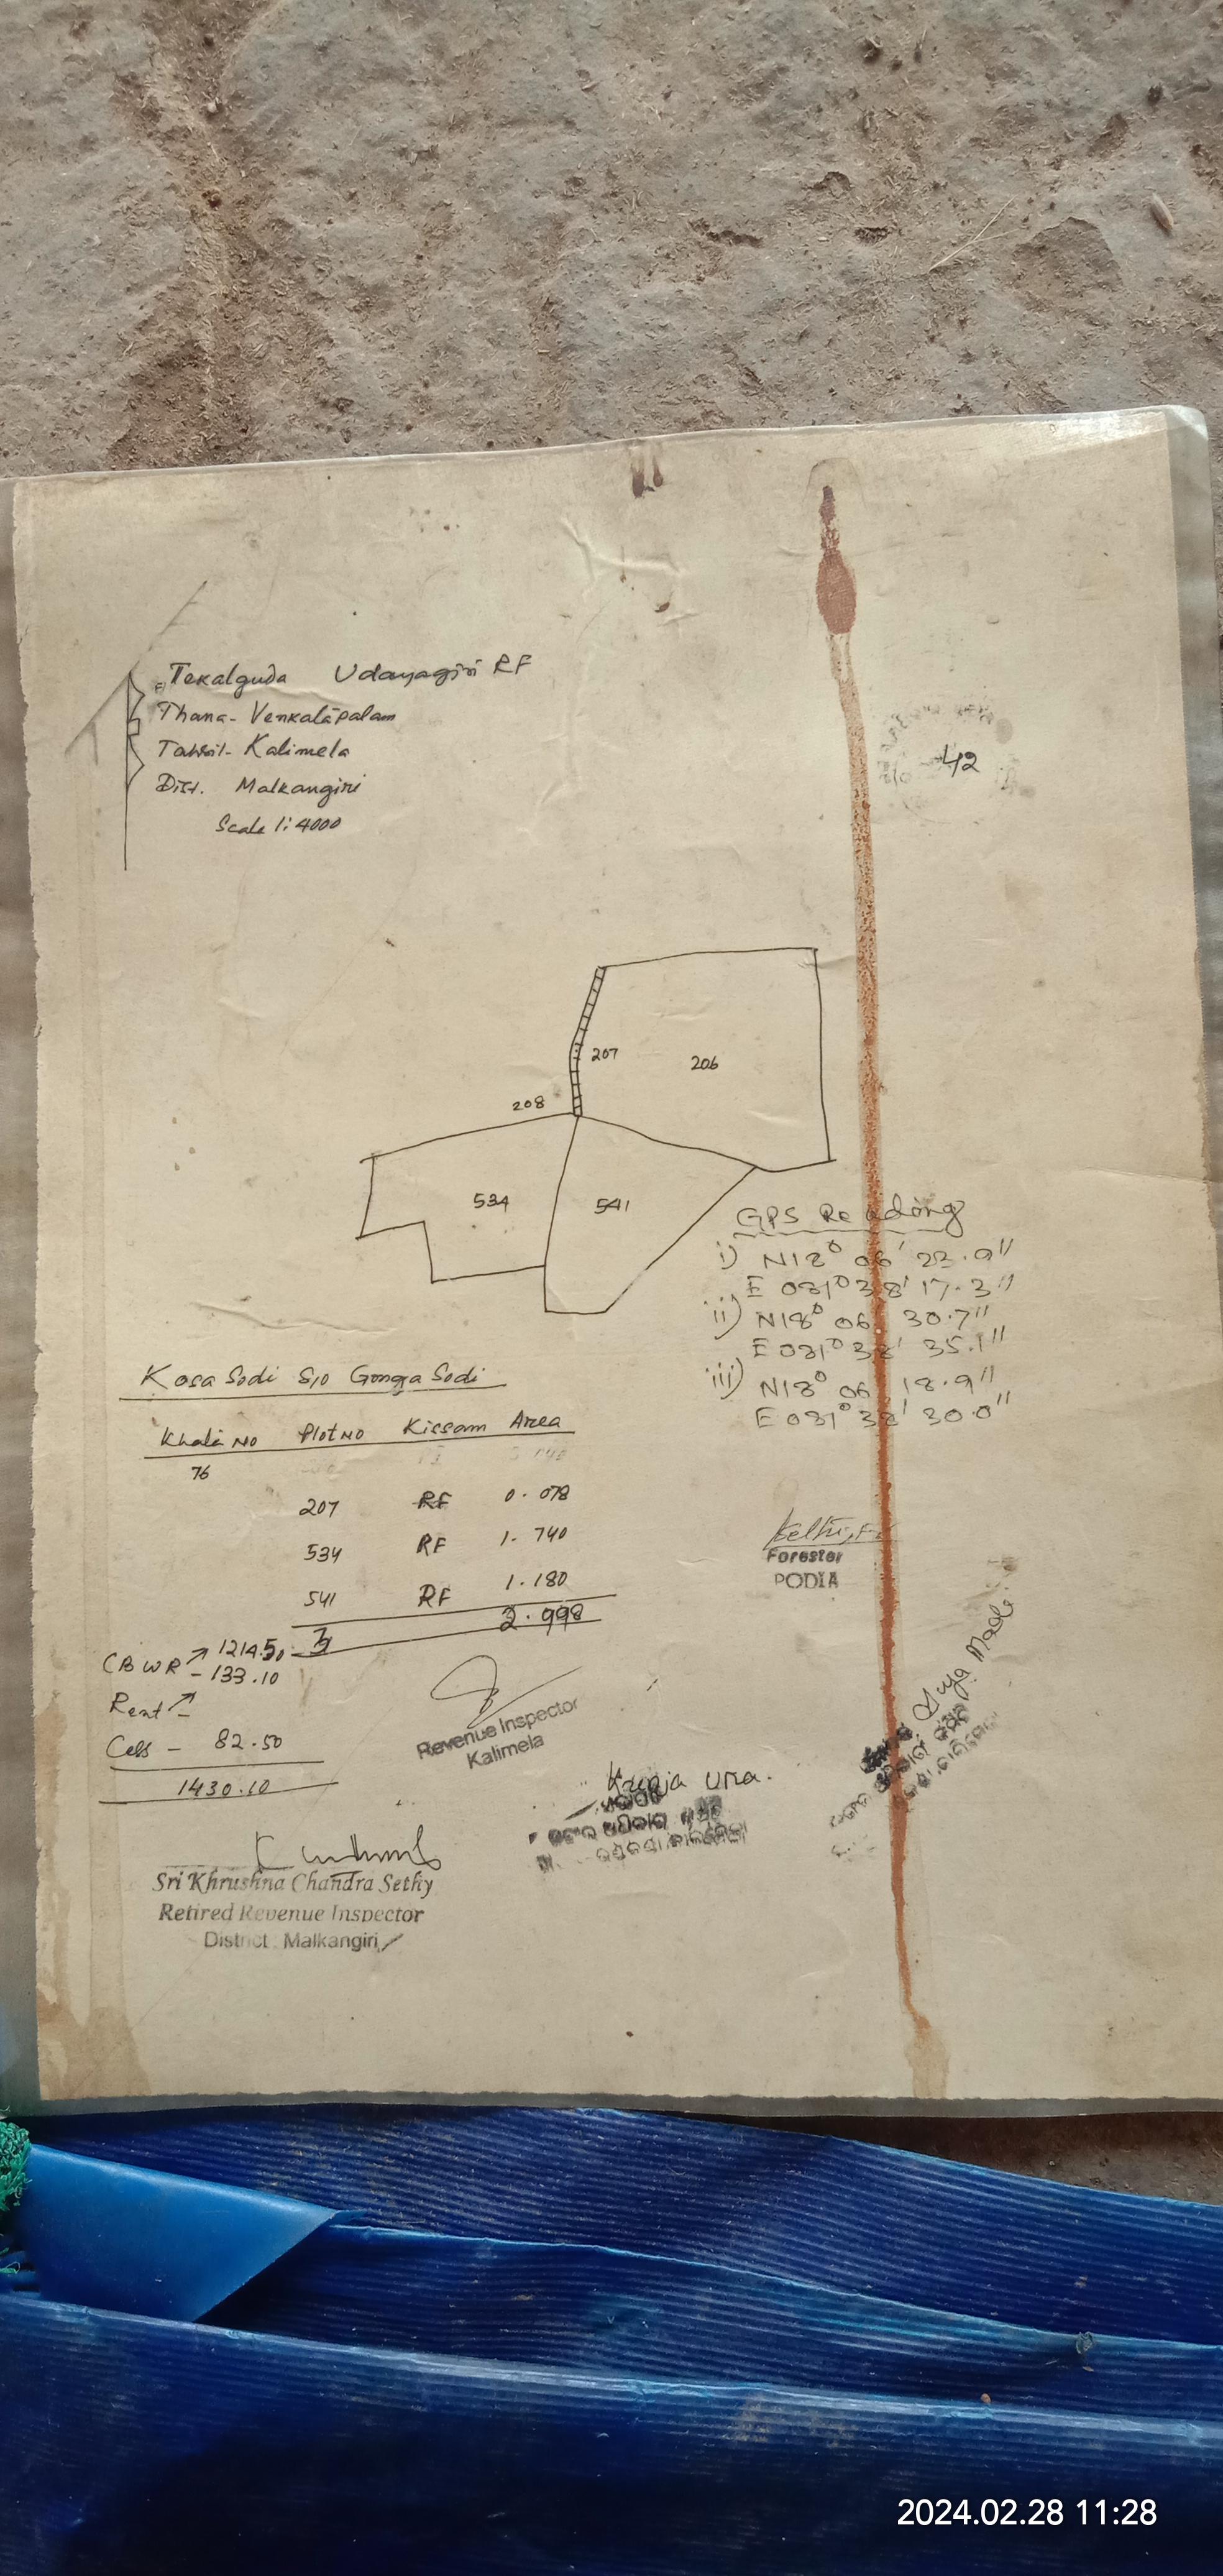 Tekalguda Udayagiri RF
Thana- Venkatapalam
Tahsil- Kalimela
Dist. Malkangiri
Scale 1:4000
42
207
206
208
534
541
GPS Reading
i) N18° 06' 23.9"
E 081° 38' 17.3"
ii) N18° 06 30.7"
E 081° 38' 35.1"
iii) N18° 06 18.9"
E 081° 38' 30.0"
Kosa Sodi S/o Gonga Sodi
Khata No Plot No Kissam Area
76
207 RF 0.078
534 RF 1.740
541 RF 1.180
3 2.998
CBWR 1214.50
- 133.10
Rent
Cess - 82.50
1430.10
Forester
PODIA
Revenue Inspector
Kalimela
Sri Khrushna Chandra Sethy
Retired Revenue Inspector
District: Malkangiri
2024.02.28 11:28